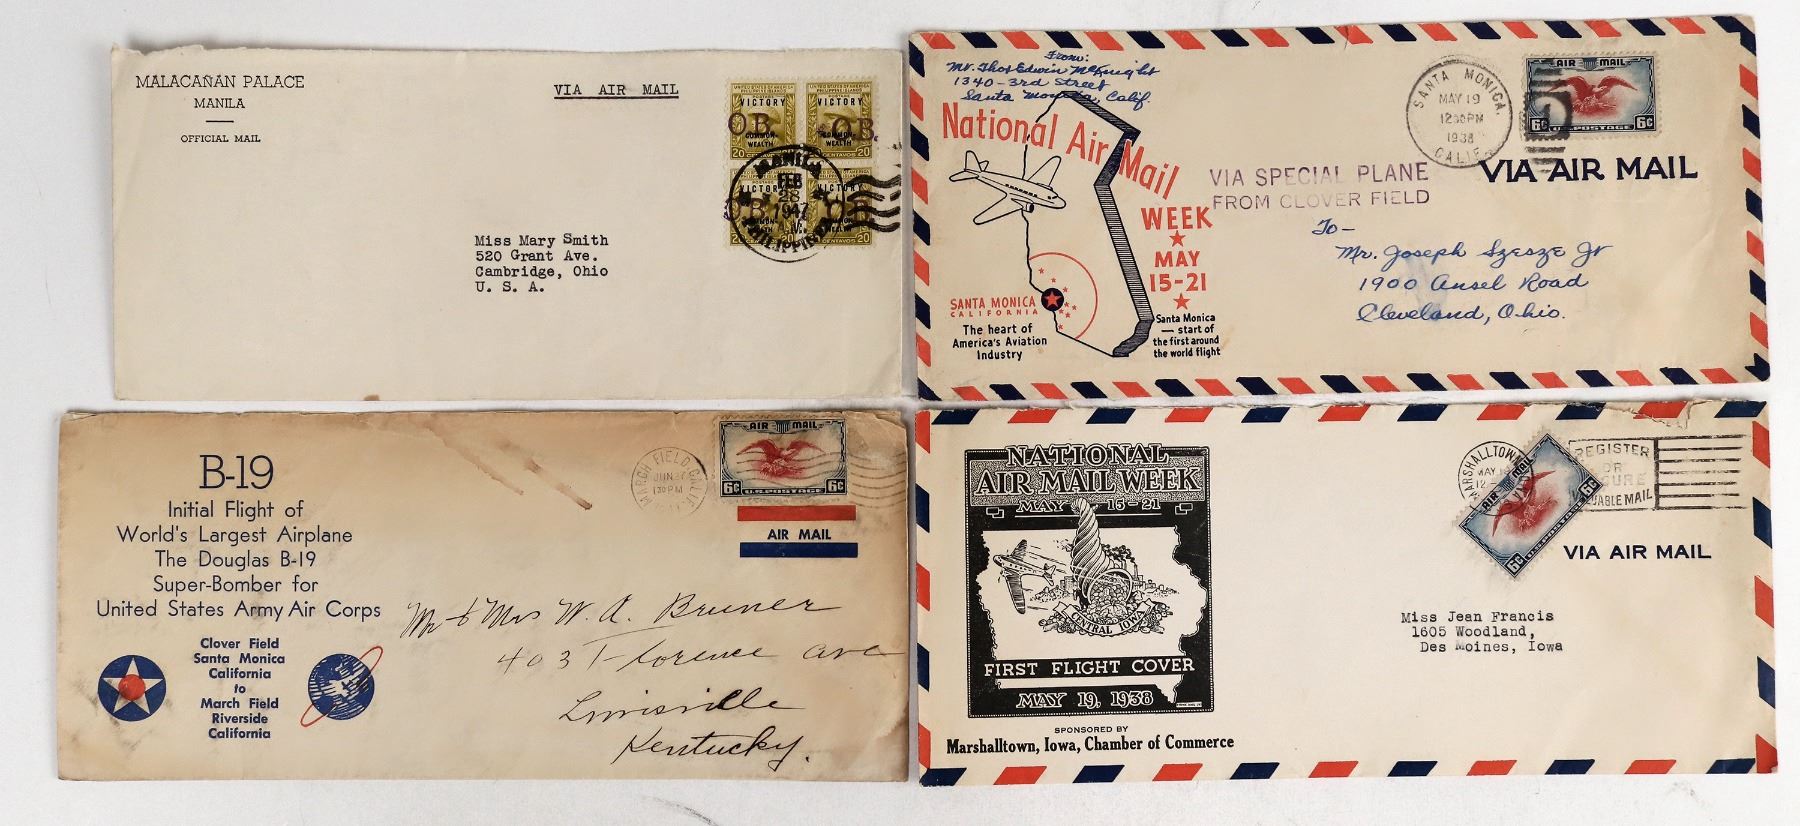 MALACAÑAN PALACE
MANILA
OFFICIAL MAIL
VIA AIR MAIL
UNITED STATES OF AMERICA
PHILIPPINE ISLANDS
POSTAGE
VICTORY
COMMON-
WEALTH
20 CENTAVOS 20
O.B.
UNITED STATES OF AMERICA
PHILIPPINE ISLANDS
POSTAGE
VICTORY
COMMON-
WEALTH
20 CENTAVOS 20
O.B.
VICTORY
VICTORY
MANILA
FEB
28
1947
PHILIPPINES
Miss Mary Smith
520 Grant Ave.
Cambridge, Ohio
U. S. A.
From:
Mr. Thos Edwin McKnight
1340-3rd Street
Santa Monica, Calif.
National Air Mail
WEEK
MAY
15-21
SANTA MONICA
CALIFORNIA
The heart of
America's Aviation
Industry
Santa Monica
— start of
the first around
the world flight
VIA SPECIAL PLANE
FROM CLOVER FIELD
SANTA MONICA,
MAY 19
12:30 PM
1938
CALIF.
AIR MAIL
6¢ U.S. POSTAGE 6¢
VIA AIR MAIL
To-
Mr. Joseph Szesze Jr
1900 Ansel Road
Cleveland, Ohio.
B-19
Initial Flight of
World's Largest Airplane
The Douglas B-19
Super-Bomber for
United States Army Air Corps
Clover Field
Santa Monica
California
to
March Field
Riverside
California
MARCH FIELD CALIF
JUN 27
130 PM
AIR MAIL
6¢ U.S. POSTAGE 6¢
AIR MAIL
Mr & Mrs W. A. Bruner
403 Florence ave
Louisville
Kentucky.
NATIONAL
AIR MAIL WEEK
MAY 15-21
CENTRAL IOWA
FIRST FLIGHT COVER
MAY 19, 1938
SPONSORED BY
Marshalltown, Iowa, Chamber of Commerce
MARSHALLTOWN
MAY 19
REGISTER
OR
VALUABLE MAIL
AIR MAIL
6¢ U.S. POSTAGE 6¢
VIA AIR MAIL
Miss Jean Francis
1605 Woodland,
Des Moines, Iowa